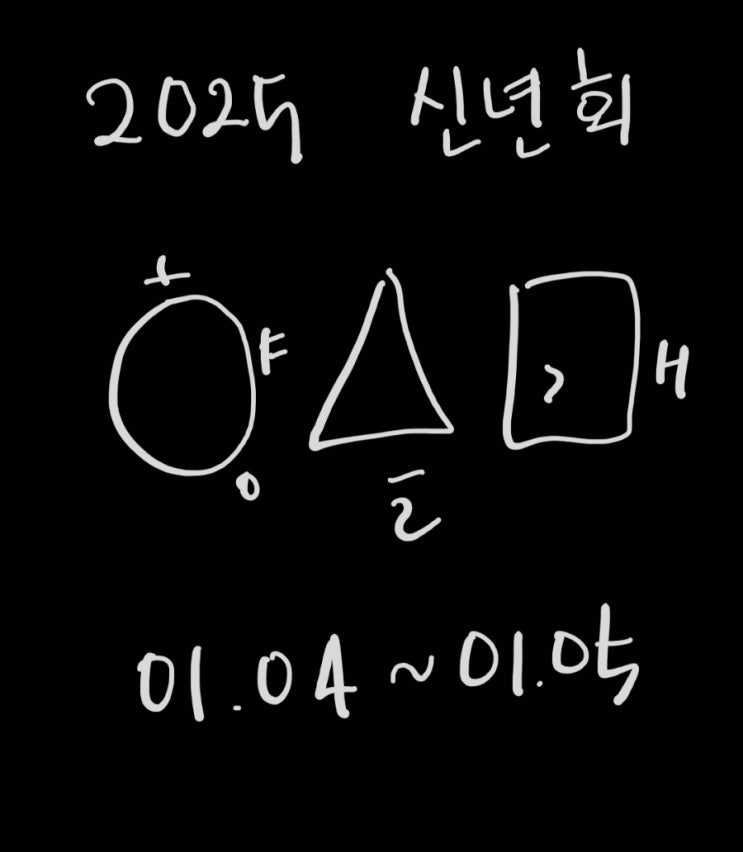 2025 신년회
01.04 ~ 01.05